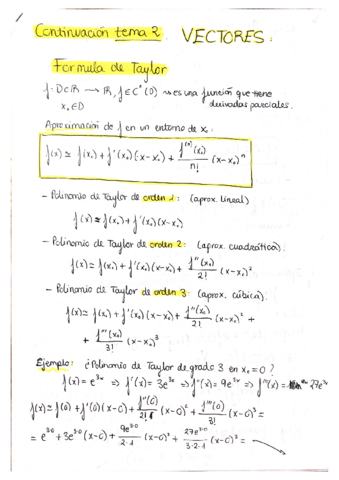 Continuación tema 2 VECTORES:
Formula de Taylor
f: D⊂ℝ → ℝ, f∈Cⁿ(D) → es una función que tiene
x₀∈D derivadas parciales.
Aproximación de f en un entorno de x₀
f(x) ≃ f(x₀) + f'(x₀)(x-x₀) + f⁽ⁿ⁾(x₀)/n! (x-x₀)ⁿ
- Polinomio de Taylor de orden 1: (aprox. lineal)
f(x) ≃ f(x₀) + f'(x₀)(x-x₀)
- Polinomio de Taylor de orden 2: (aprox. cuadrática):
f(x) ≃ f(x₀) + f'(x₀)(x-x₀) + f''(x₀)/2! (x-x₀)²
- Polinomio de Taylor de orden 3: (aprox. cúbica):
f(x) ≃ f(x₀) + f'(x₀)(x-x₀) + f''(x₀)/2! (x-x₀)² +
+ f'''(x₀)/3! (x-x₀)³
Ejemplo: ¿Polinomio de Taylor de grado 3 en x₀=0?
f(x) = e³ˣ ⇒ f'(x) = 3e³ˣ ⇒ f''(x) = 9e³ˣ ⇒ f'''(x) = 27e³ˣ
f(x) ≃ f(0) + f'(0)(x-0) + f''(0)/2! (x-0)² + f'''(0)/3! (x-0)³ =
= e³·⁰ + 3e³·⁰(x-0) + 9e³·⁰/2·1 (x-0)² + 27e³·⁰/3·2·1 (x-0)³ =